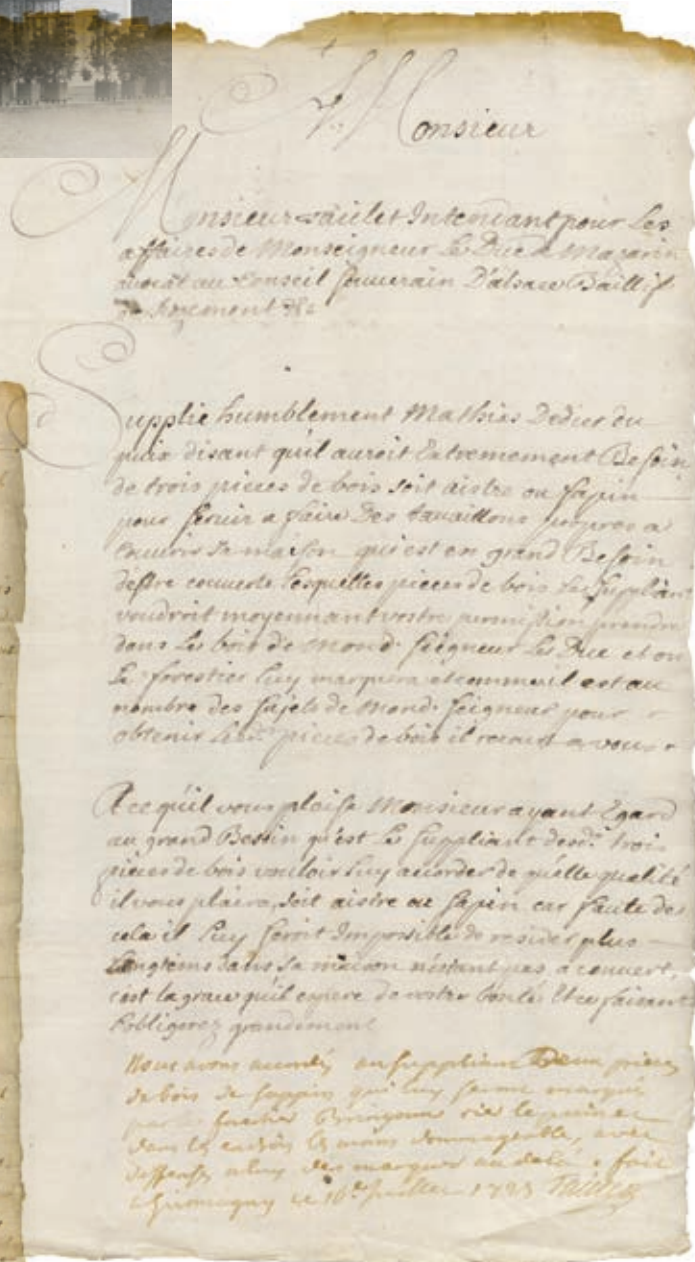 A Monsieur
Monsieur Taiclet Intendant pour Les
affaires de Monseigneur Le Duc de Mazarin
avocat au Conseil Souverain D'alsace Baillif
de Rozemont &c
Supplie humblement Mathias Didier du
puix disant qu'il auroit Extremement Besoin
de trois pieces de bois soit aistre ou sapin
pour servir a faire Des tavaillons propres a
Couvrir sa maison qu'est en grand Besoin
d'estre couverte Lesquelles pieces de bois Le Suppliant
voudroit moyennant vostre permission prendre
dans Les bois de Mond. Seigneur Le Duc et ou
Le forestier Luy marquera et comme il est au
nombre des sujets de Mond. Seigneur pour
obtenir Lesd. pieces de bois il recourt a vous
A ce qu'il vous plaise Monsieur ayant Egard
au grand Besoin qu'est Le Suppliant desd. trois
pieces de bois vouloir Luy accorder de quelle qualité
il vous plaira, soit aistre ou sapin car faute de
cela il Luy seroit Impossible de resider plus
Longtems dans sa maison n'estant pas a couvert,
c'est la grace qu'il espere de vostre bonté Et ce faisant
l'obligerez grandement
Nous avons accordé au Suppliant Deux pieces
de bois de sappin qui luy seront marqués
par forestier
dans les endroits les moins dommageable, avec
deffense a luy d'en marquer au dela, fait
a Giromagny ce 16e Juillet 1723 Taiclet